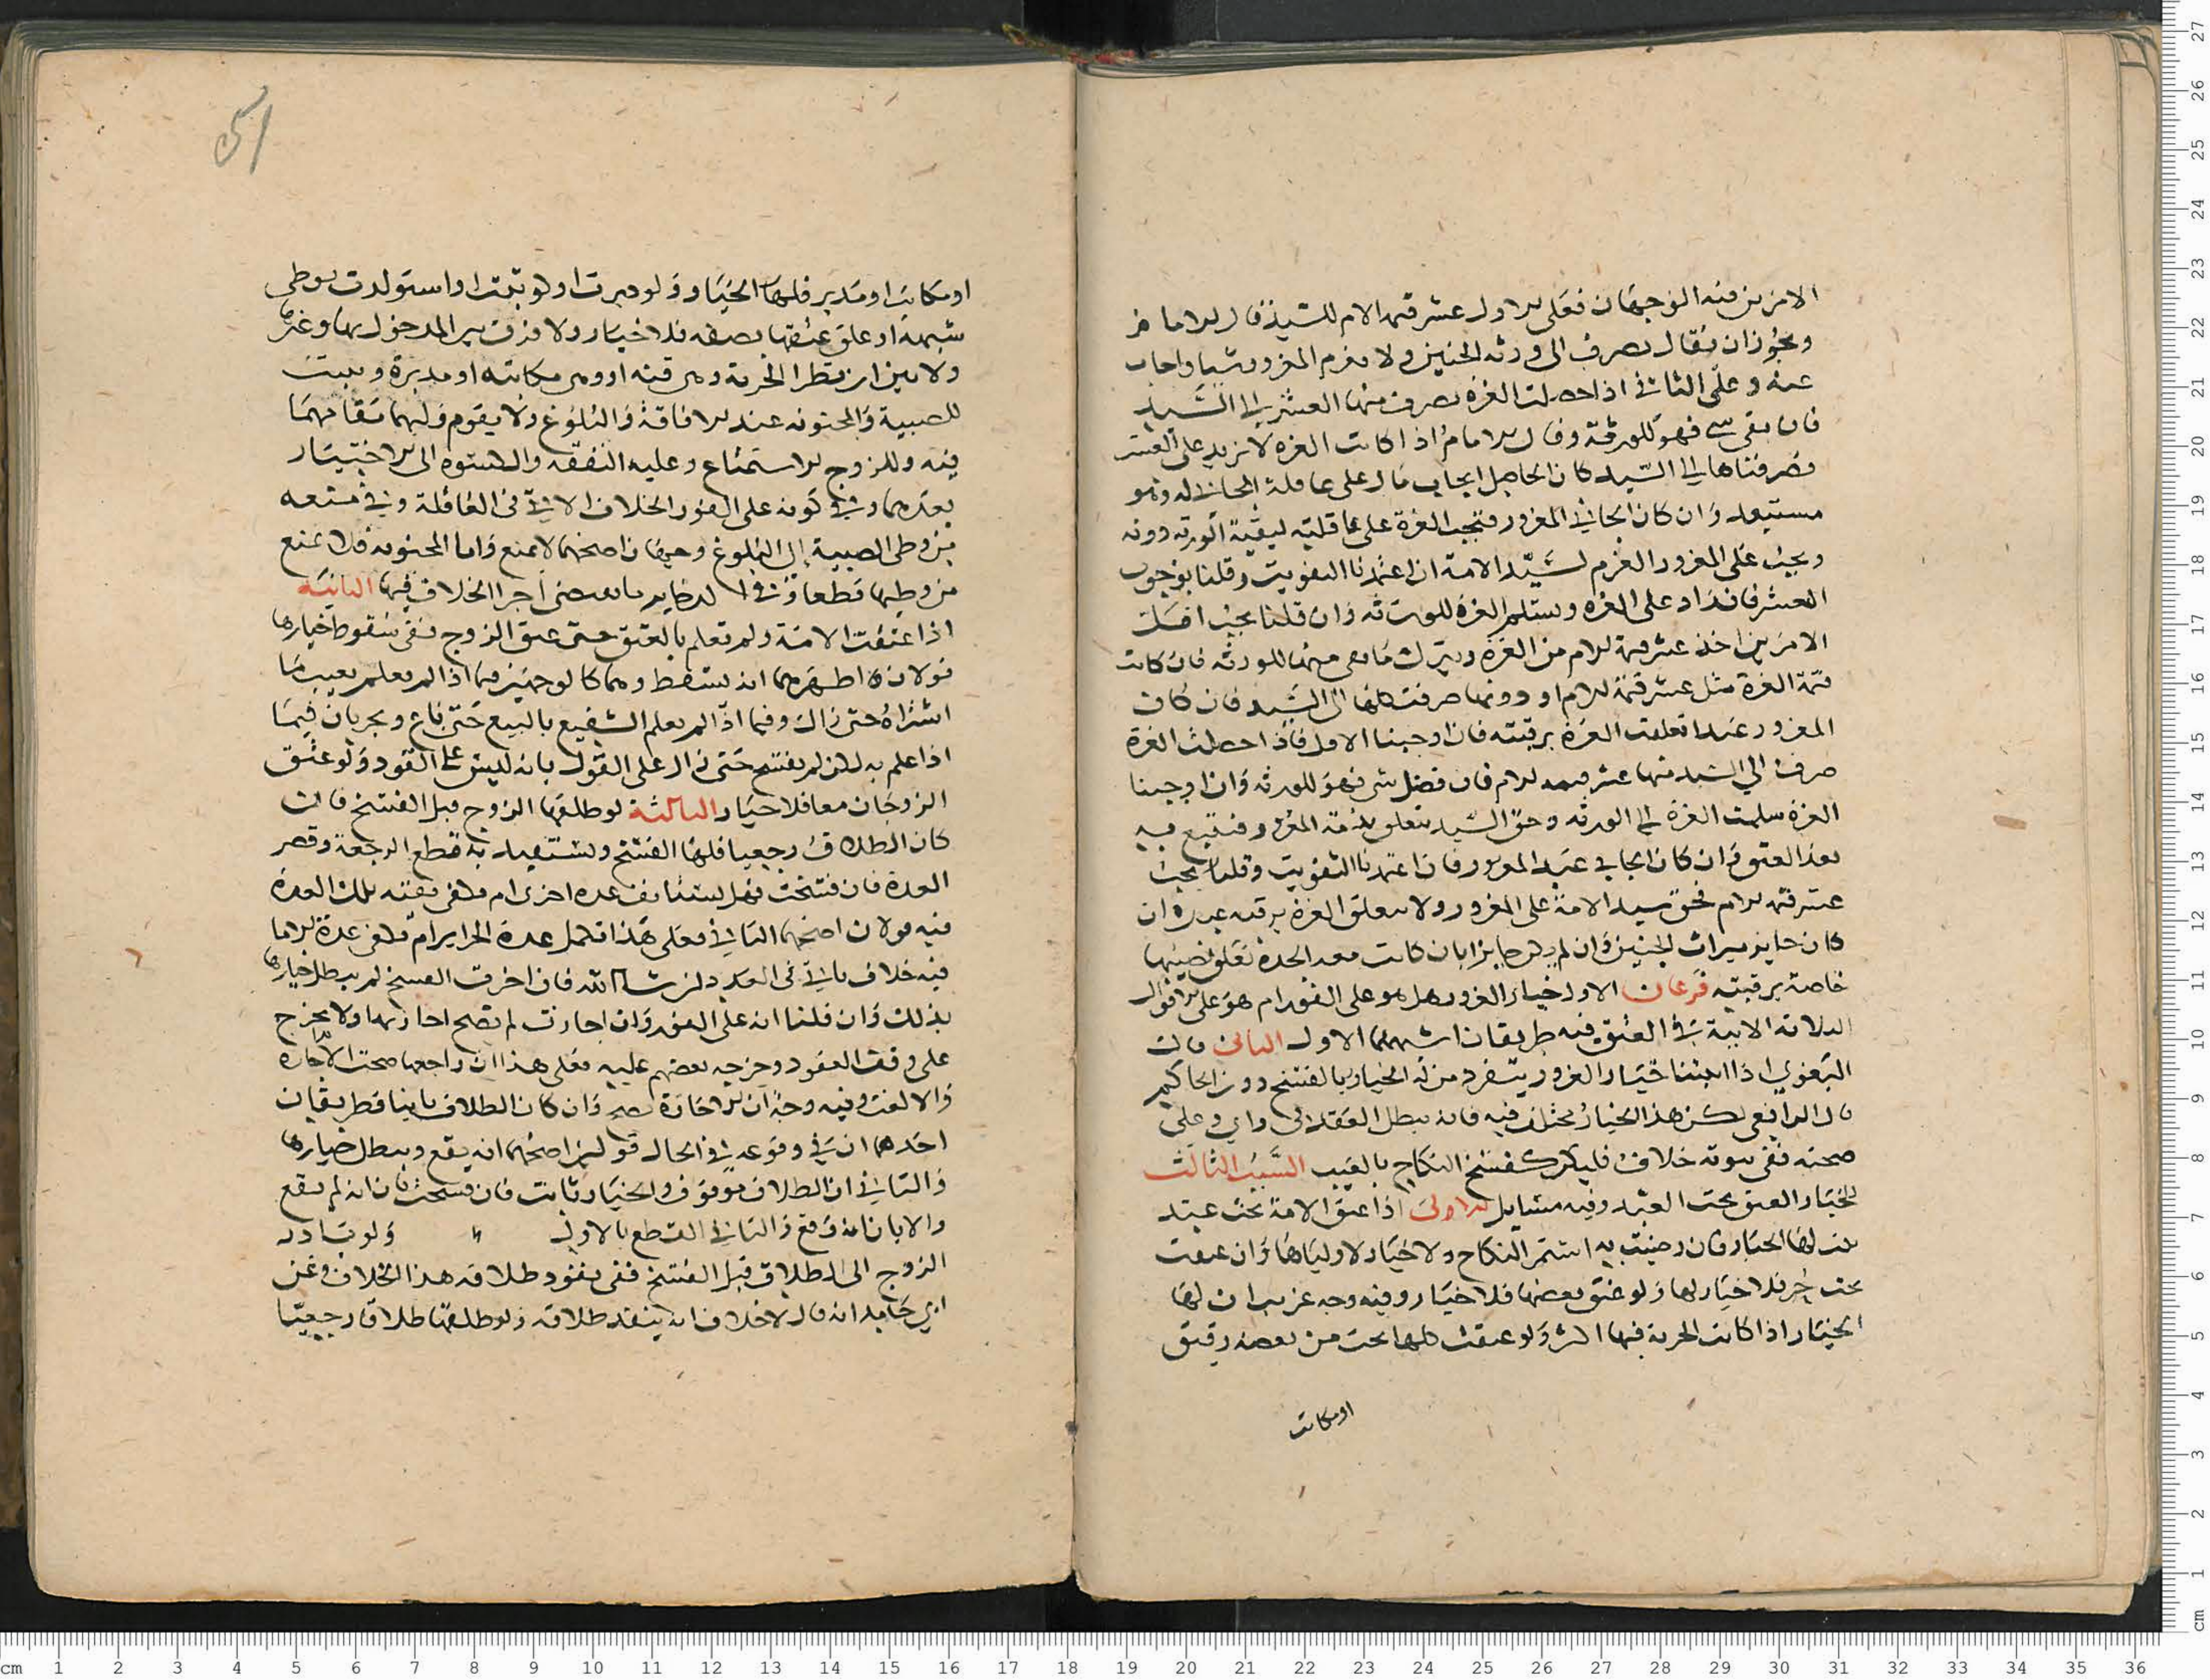 الامرين فيه الوجهان فعلى الاول عشر قيمة الام للسيد قال الامام
ويجوز ان يقال يصرف الى ورثة الجنين ولا يغرم المغرور شيا واجاب
عنه وعلى الثاني اذا حصلت الغرة يصرف منها العشر الى السيد
فان بقي شي فهو للورثة وقال الامام اذا كانت الغرة لا تزيد على العشر
فصرفناها الى السيد كان الحاصل ايجاب مال على عاقلة الجاني له وهو
مستبعد وان كان الجاني المغرور فتجب الغرة على عاقلته لبقية الورثة دونه
ويجب على المغرور الغرم لسيد الامة ان اعتمدنا التفويت وقلنا بوجوب
العشر فان زاد على الغرة وستلم الغرة للورثة وان قلنا يجب اقل
الامرين اخذ عشر قيمة الام من الغرة ويترك ما بقي منها للورثة فان كانت
قيمة الغرة مثل عشر قيمة الام او دونها صرفت كلها الى السيد فان كان
المغرور عبدا تعلقت الغرة برقبته فان اوجبنا الاول فاذا حصلت الغرة
صرف الى السيد منها عشر قيمة الام فان فضل شي فهو للورثة وان اوجبنا
الغرة سلمت الغرة الى الورثة وحق السيد يتعلق بذمة المغرور فيتبع به
بعد العتق وان كان الجاني عبد المغرور فان اعتمدنا التفويت وقلنا يجب
عشر قيمة الام فحق سيد الامة على المغرور ولا يتعلق الغرة برقبة عبده ان
كان حايز ميراث الجنين وان لم يكن حايزا بان كانت معه الجدة تعلق نصيبها
خاصة برقبته فرعان الاول خيار الغرور هل هو على الفور ام هو على الاقوال
الثلاثة الاتية في العتق فيه طريقان اشهرهما الاول الثاني قال
البغوي اذا اثبتنا خيار الغرور يتفرد من له الخيار بالفسخ دون الحاكم
قال الرافعي لكن هذا الخيار مختلف فيه فانه يبطل العقد في راي وعلى
صحته ففي ثبوته خلاف فليكن كفسخ النكاح بالعيب السبب الثالث
للخيار العتق تحت العبد وفيه مسايل الاولى اذا عتق الامة تحت عبد
ثبت لها الخيار فان رضيت به استمر النكاح ولا خيار لاوليائها وان عتقت
تحت حر فلا خيار لها ولو عتق بعضها فلا خيار وفيه وجه غريب ان لها
الخيار اذا كانت الحرية فيها اكثر ولو عتقت كلها تحت من بعضه رقيق
او مكاتب
51
او مكاتب او مدبر فلها الخيار ولو دبرت او كوتبت او استولدت بوطي
شبهة او علق عتقها بصفة فلا خيار ولا فرق بين المدخول بها وغيرها
ولا بين ان يطرا الحرية وهي قنة او وهي مكاتبة او مدبرة ويبيت
للصبية والمجنونة عند الافاقة والبلوغ ولا يقوم وليهما مقامهما
فيه وللزوج الاستمتاع وعليه النفقة والكسوة الى الاختيار
بعدهما وفي كونه على الفور الخلاف الاتي في العاقلة وفي منعه
من وطي الصبية الى البلوغ وجهان اصحهما لا يمنع واما المجنونة فلا يمنع
من وطيها قطعا وفي الذخاير ما يقتضي اجرا الخلاف فيها الثانية
اذا عتقت الامة ولم تعلم بالعتق حتى عتق الزوج ففي سقوط خيارها
قولان اظهرهما انه يسقط وهما كالوجهين فيما اذا لم يعلم بعيب ما
اشتراه حتى زال وفيما اذا لم يعلم الشفيع بالبيع حتى باع ويجريان فيما
اذا علم به لكن لم يفسخ حتى زال على القول بانه ليس على الفور ولو عتق
الزوجان معا فلا خيار الثالثة لو طلقها الزوج قبل الفسخ فان
كان الطلاق رجعيا فلها الفسخ وتستفيد به قطع الرجعة وقصر
العدة فان فسخت فهل يستانف عدة اخرى ام يكفي بقية تلك العدة
فيه قولان اصحهما الثاني فعلى هذا تكمل عدة الحراير ام يكفي عدة الاما
فيه خلاف ياتي في العدد ان شا الله فان اخرت الفسخ لم يبطل خيارها
بذلك وان قلنا انه على الفور وان اجازت لم تصح اجازتها ولا يخرج
على وقف العقود وخرجه بعضهم عليه فعلى هذا ان راجعها صحت الاجازة
والا لغت وفيه وجه ان الاجازة تصح وان كان الطلاق باينا فطريقان
احدهما ان في وقوعه في الحال قولين اصحهما انه يقع ويبطل خيارها
والثاني ان الطلاق موقوف والخيار ثابت فان فسخت بان انه لم يقع
والا بان انه وقع والثاني القطع بالاول ولو بادر
الزوج الى الطلاق قبل الفسخ ففي نفوذ طلاقه هذا الخلاف وعن
ابي حامد انه قال لا خلاف انه ينفذ طلاقه ولو طلقها طلاقا رجعيا